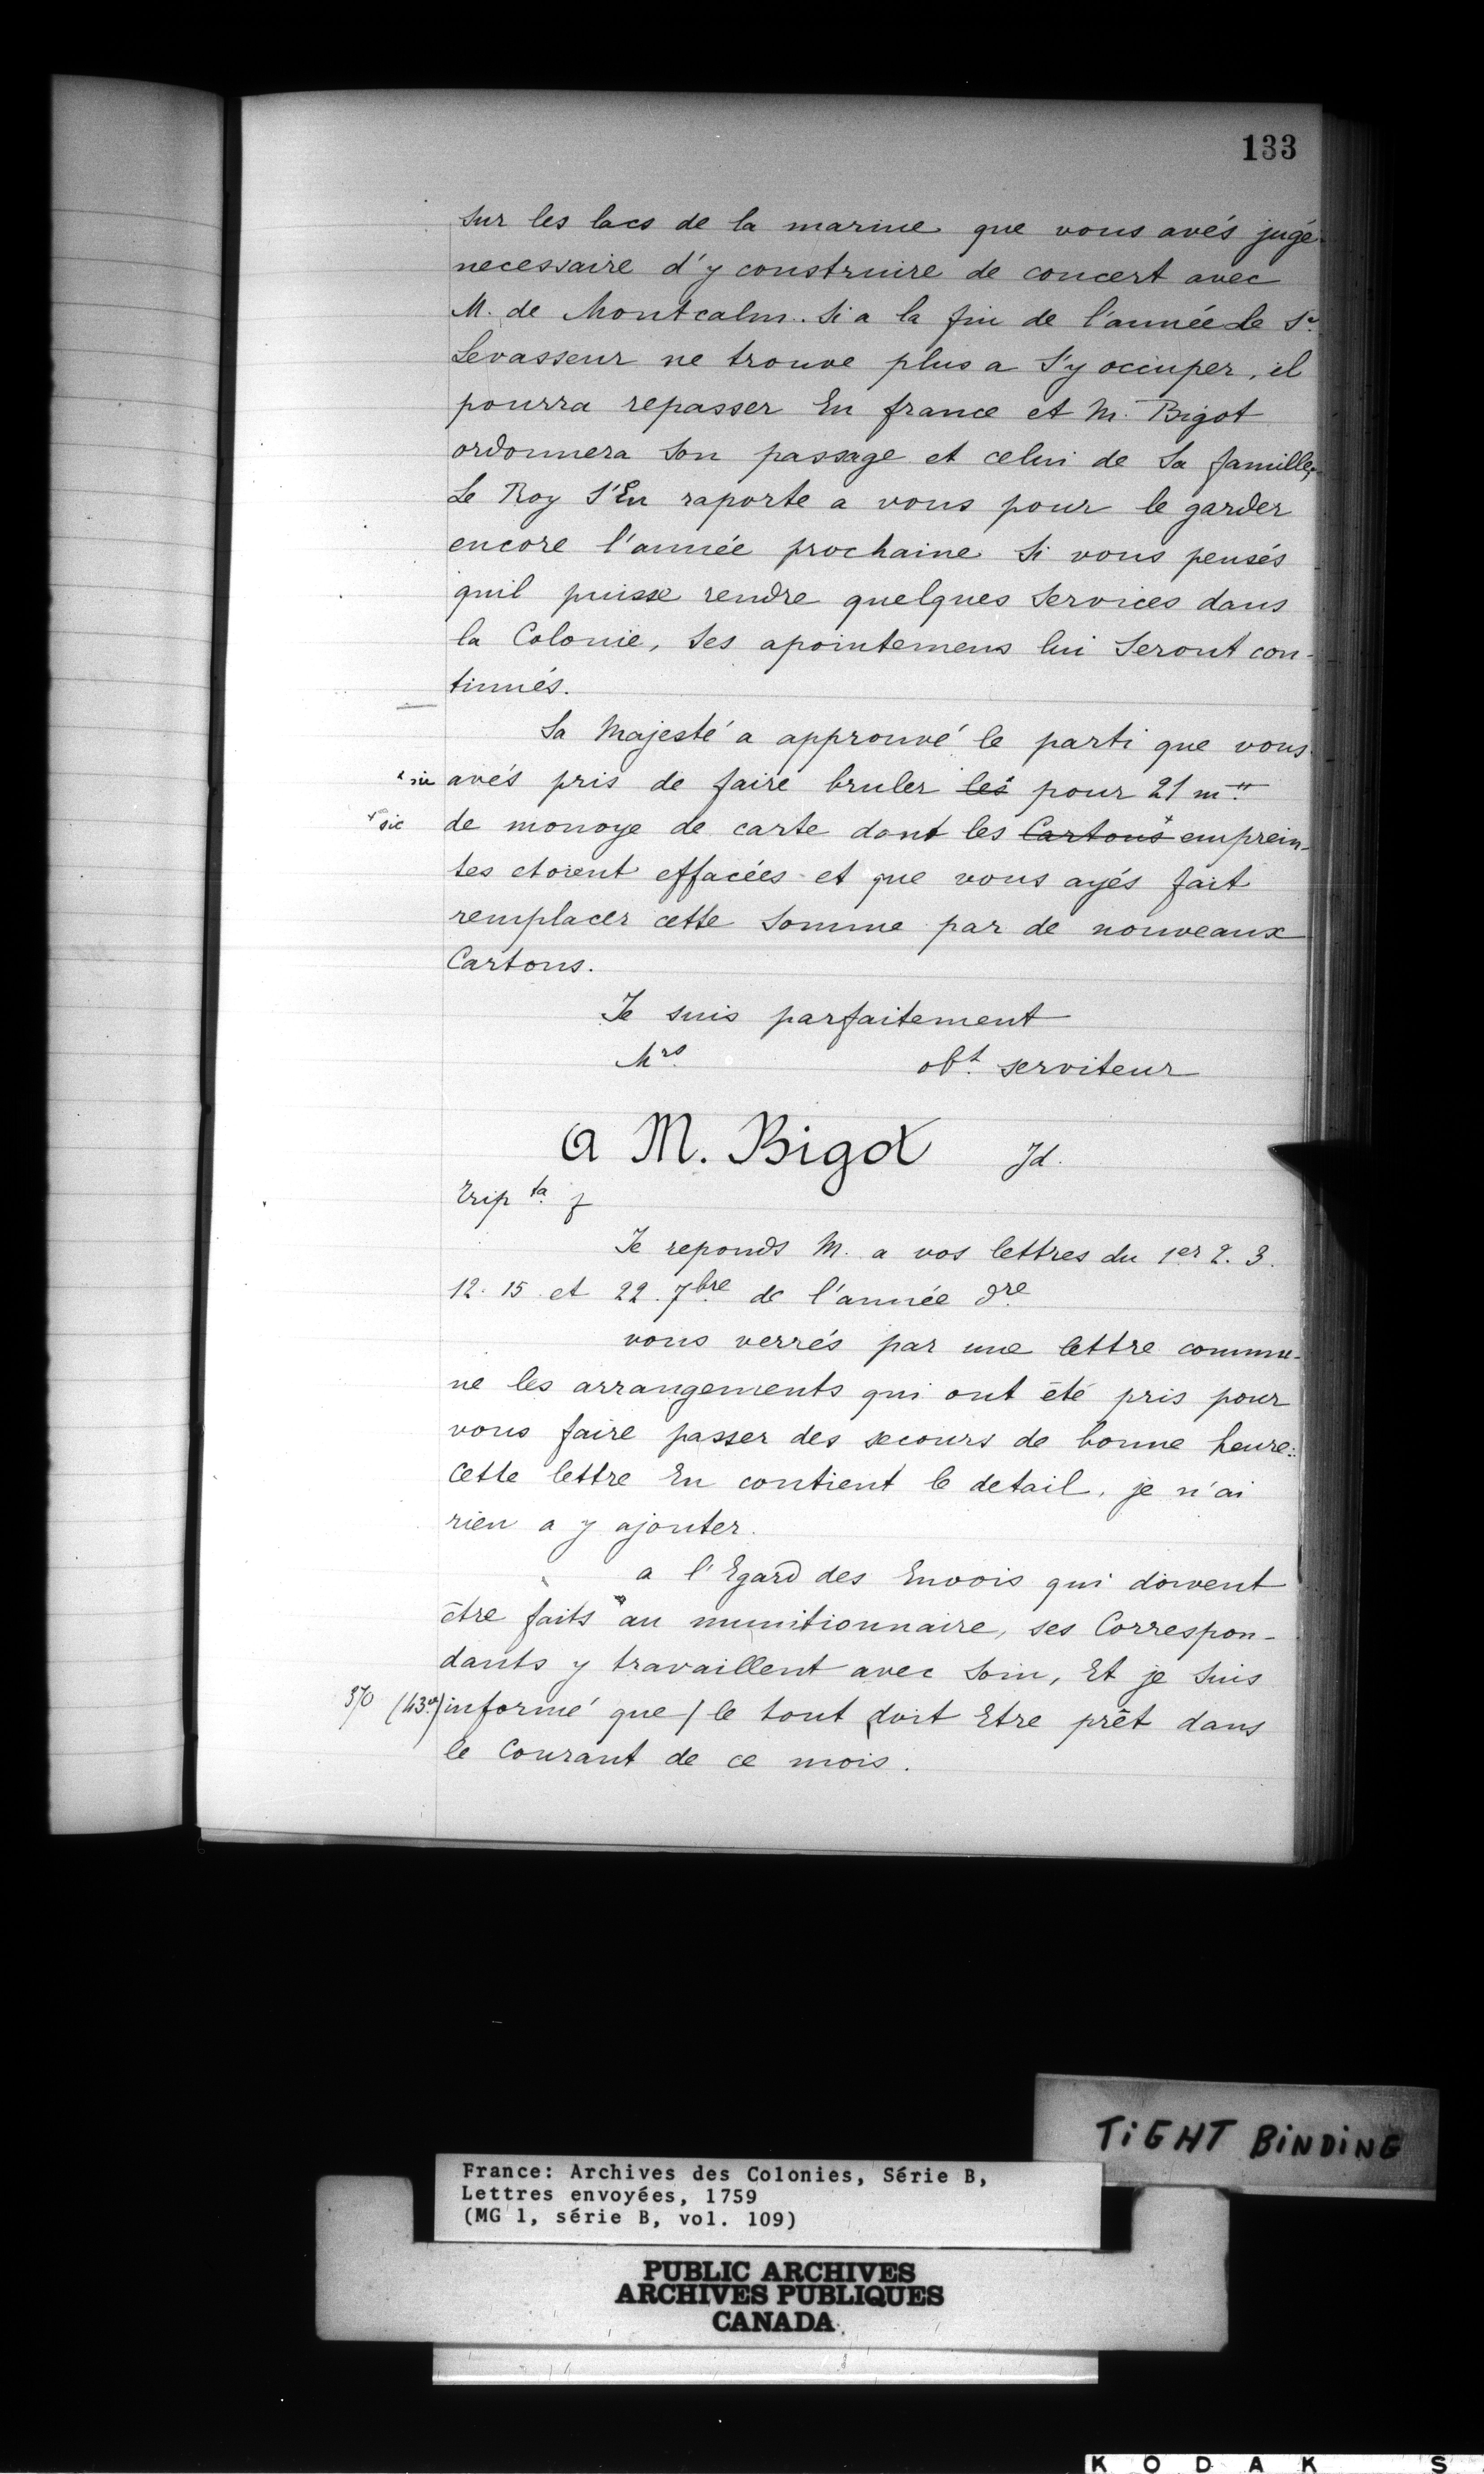 133
sur les lacs de la marine que vous avés jugé
necessaire d'y construire de concert avec
M. de Montcalm. Si a la fin de l'année le Sr.
Levasseur ne trouve plus a s'y occuper, il
pourra repasser En france et M. Bigot
ordonnera son passage et celui de sa famille,
Le Roy s'En raporte a vous pour le garder
encore l'année prochaine si vous pensés
qu'il puisse rendre quelques services dans
la Colonie, ses apointemens lui seront con-
tinués.
Sa Majesté a approuvé le parti que vous
x sic avés pris de faire bruler les x pour 21 m.tt
x sic de monoye de carte dont les Cartons x emprein-
tes etoient effacées et que vous ayés fait
remplacer cette somme par de nouveaux
Cartons.
Je suis parfaitement
Mrs. obt. serviteur
a M. Bigot Jd.
trip ta f
Je reponds M. a vos lettres du 1er 2. 3.
12. 15 et 22. 7bre de l'année dre
vous verrés par une lettre commu-
ne les arrangements qui ont été pris pour
vous faire passer des secours de bonne heure:
Cette lettre En contient le detail, je n'ai
rien a y ajouter.
a l'Egard des Envois qui doivent
être faits au munitionnaire, ses Correspon-
dants y travaillent avec soin, Et je suis
370 (43vo) informé que / le tout doit Etre prêt dans
le Courant de ce mois.
TIGHT BINDING
France: Archives des Colonies, Série B,
Lettres envoyées, 1759
(MG 1, série B, vol. 109)
PUBLIC ARCHIVES
ARCHIVES PUBLIQUES
CANADA
KODAK S